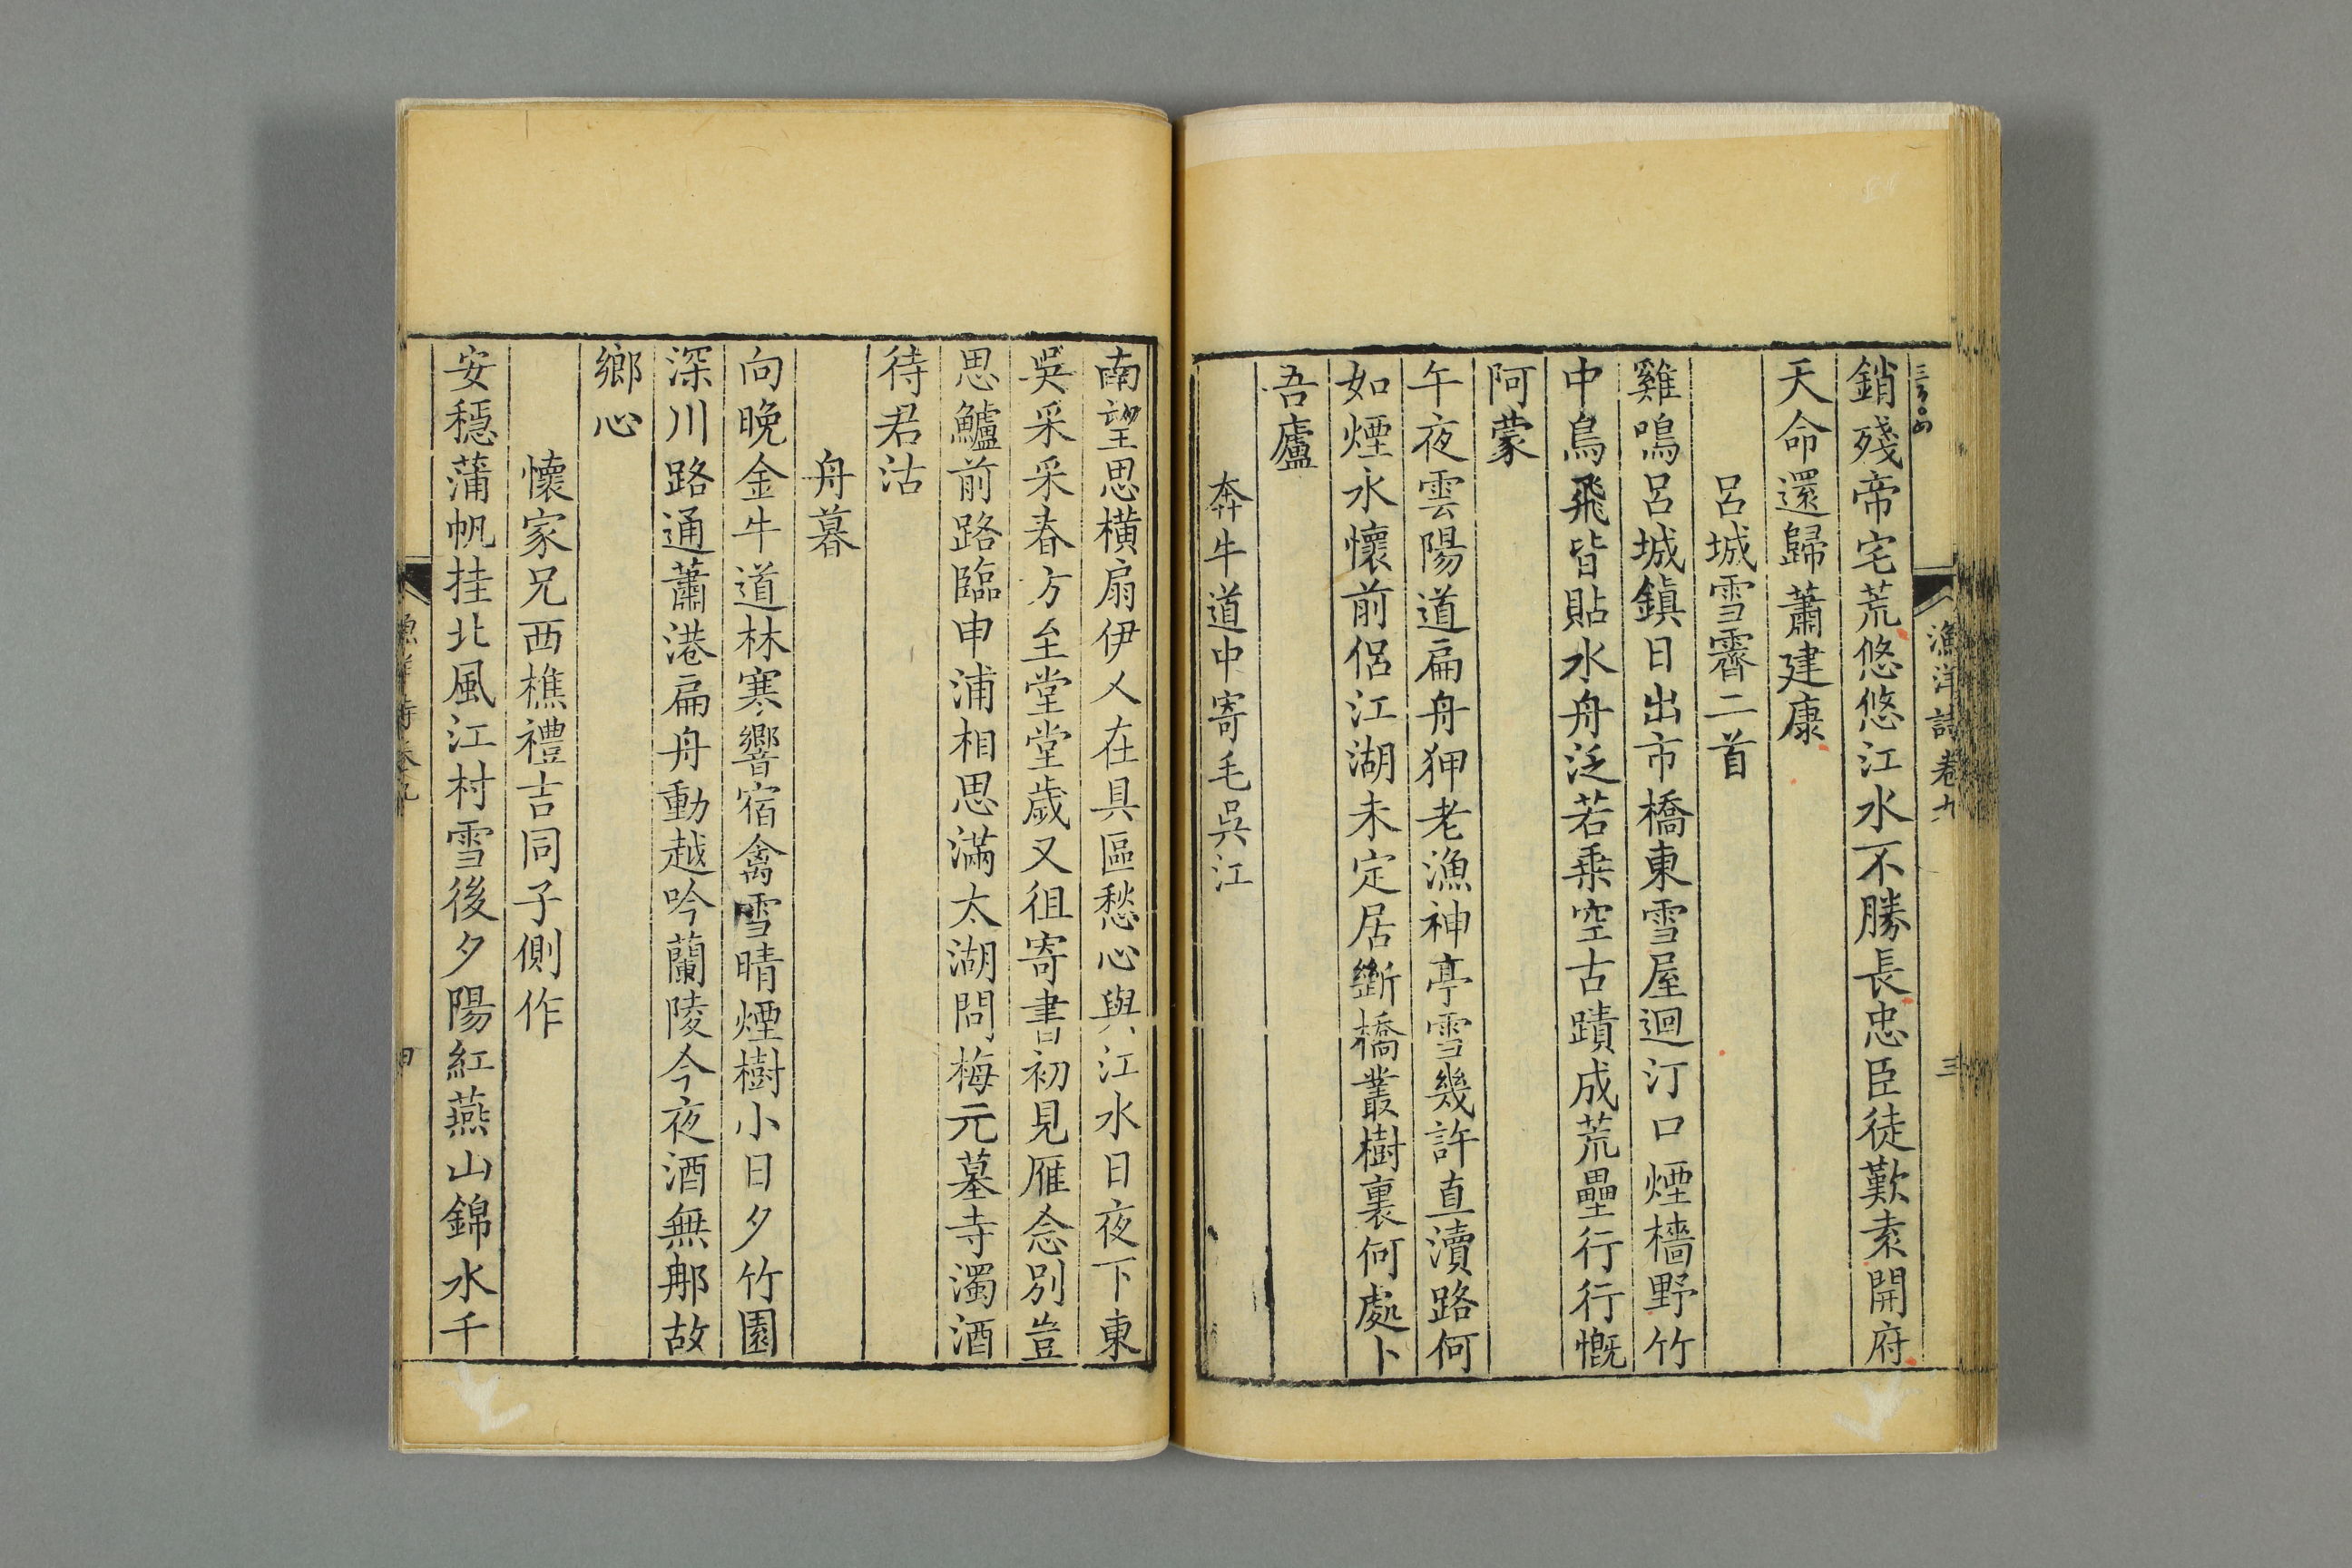 漁洋詩卷九
三
銷殘帝宅荒悠悠江水不勝長忠臣徒歎袁開府
天命還歸蕭建康
呂城雪霽二首
雞鳴呂城鎮日出市橋東雪屋迴汀口煙檣野竹
中鳥飛皆貼水舟泛若乗空古蹟成荒壘行行慨
阿蒙
午夜雲陽道扁舟狎老漁神亭雪幾許直瀆路何
如煙水懷前侶江湖未定居斷橋叢樹裏何處卜
吾廬
奔牛道中寄毛吳江
南望思橫扇伊人在具區愁心與江水日夜下東
吳采采春方至堂堂歲又徂寄書初見雁念別豈
思鱸前路臨申浦相思滿太湖問梅元墓寺濁酒
待君沽
舟暮
向晚金牛道林寒響宿禽雪晴煙樹小日夕竹園
深川路通蕭港扁舟動越吟蘭陵今夜酒無那故
鄉心
懷家兄西樵禮吉同子側作
安穩蒲帆挂北風江村雪後夕陽紅燕山錦水千